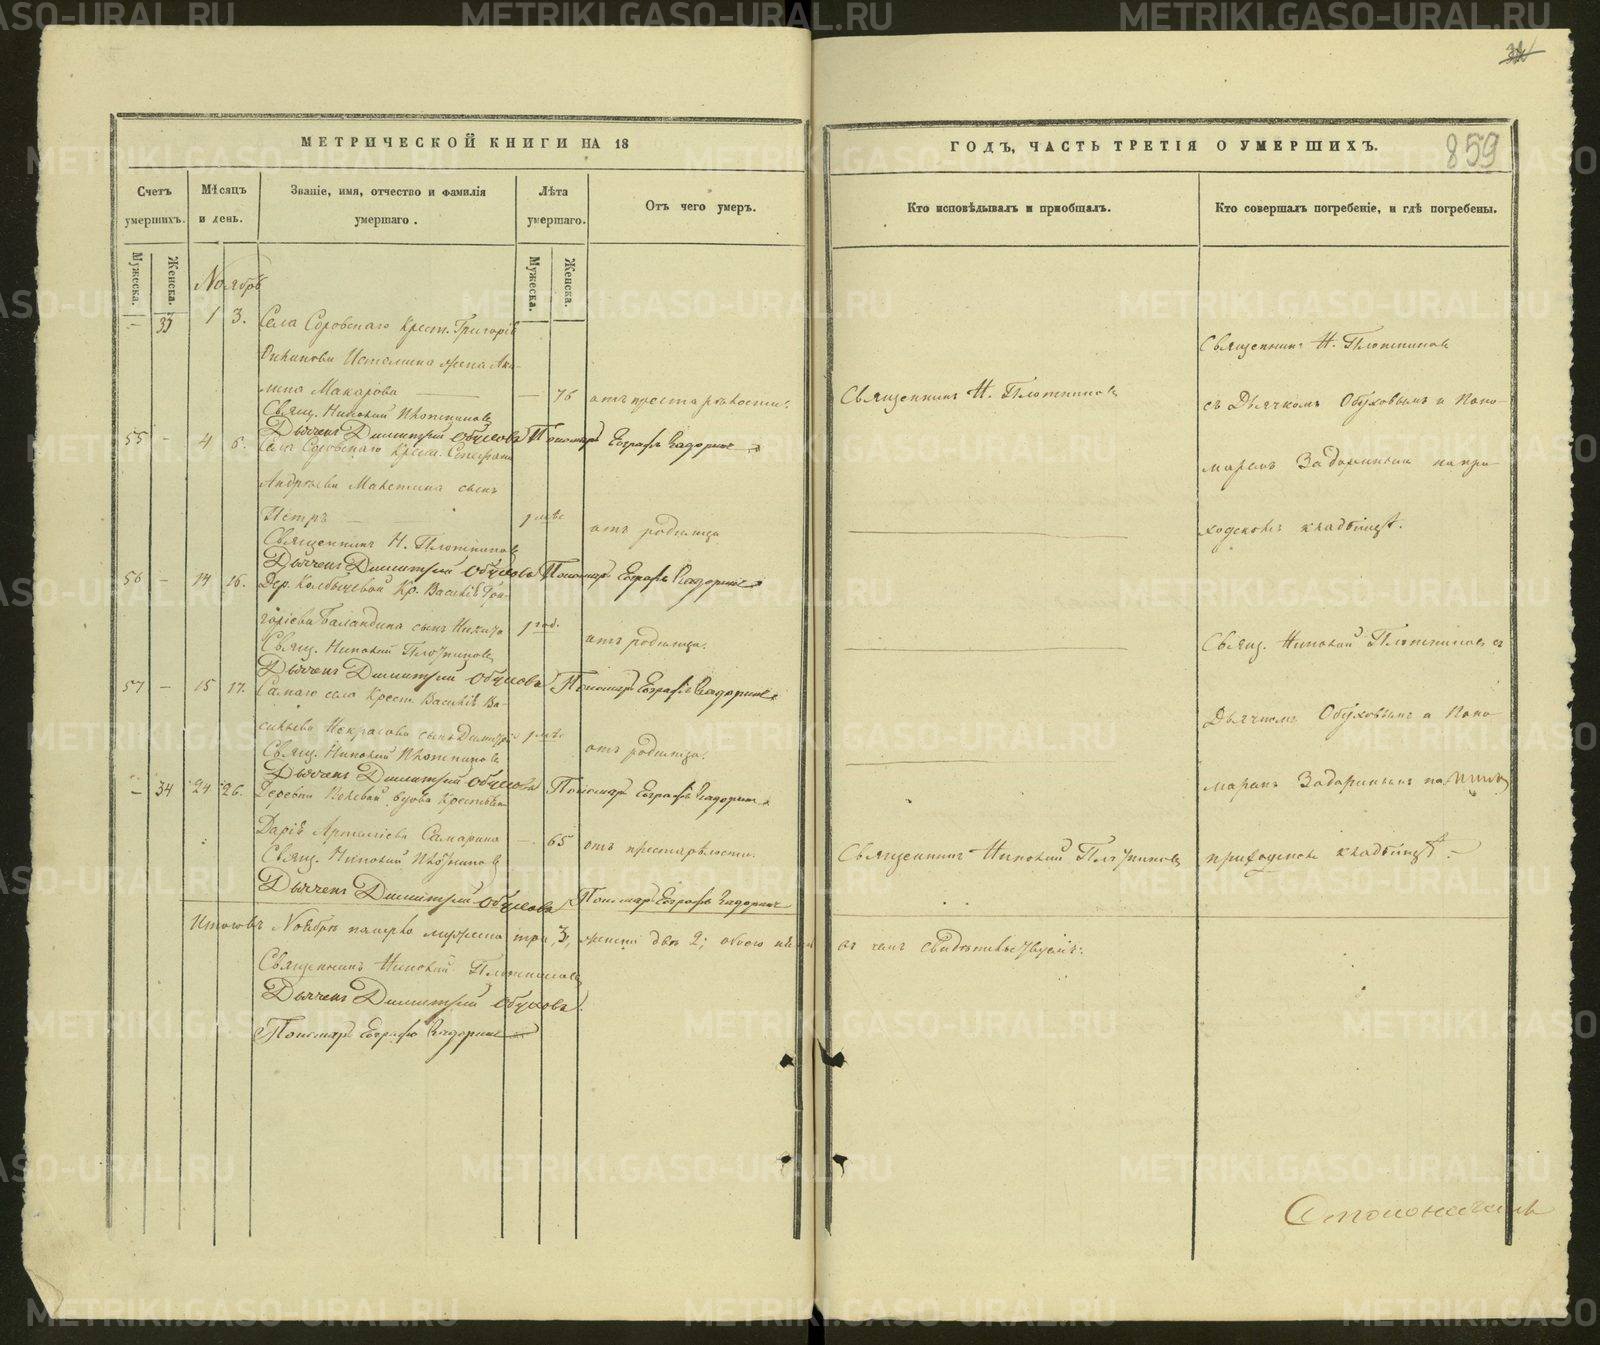 МЕТРИЧЕСКОЙ КНИГИ НА 18
ГОДЪ, ЧАСТЬ ТРЕТІЯ О УМЕРШИХЪ.
859
Счетъ умершихъ.
Мѣсяцъ и день.
Званіе, имя, отчество и фамилія умершаго.
Лѣта умершаго.
Отъ чего умеръ.
Кто исповѣдывалъ и пріобщалъ.
Кто совершалъ погребеніе, и гдѣ погребены.
Мужеска.
Женска.
Мужеска.
Женска.
Ноябрь
— 33 1 3. Села Суровскаго Крест. Григорія
жена Аки-
лина Макарова — 76 отъ престарѣлости.
Священникъ Н. Плотниковъ
Священникъ Н. Плотниковъ
съ Дьячкомъ Обуховымъ и Поно-
маремъ Задоринымъ на при-
ходскомъ кладбищѣ.
Свящ. Николай Плотниковъ
Дьячекъ Димитрій Обуховъ Пономарь Евграфъ Задоринъ
55 — 4 6. Села Суровскаго Крест. Стефана
Андреева сынъ
Петръ — 1 мѣс. отъ родимца
Священникъ Н. Плотниковъ
Дьячекъ Димитрій Обуховъ Пономарь Евграфъ Задоринъ
56 — 14 16. Дер. Кр. Василія Гри-
горіева Баландина сынъ 1 год. отъ родимца.
Свящ. Николай Плотниковъ
Дьячекъ Димитрій Обуховъ Пономарь Евграфъ Задоринъ
Свящ. Николай Плотниковъ съ
Дьячкомъ Обуховымъ и Поно-
маремъ Задоринымъ на
приходскомъ кладбищѣ.
57 — 15 17. Самаго села Крест. Василія Ва-
сильева Некрасова сынъ Димитрій 1 мѣс. отъ родимца.
Свящ. Николай Плотниковъ
Дьячекъ Димитрій Обуховъ Пономарь Евграфъ Задоринъ
— 34 24 26. Деревни вдова
Дарія Артеміева Самарина — 65 отъ престарѣлости.
Священникъ Николай Плотниковъ
Свящ. Николай Плотниковъ
Дьячекъ Димитрій Обуховъ Пономарь Евграфъ Задоринъ
Итого въ Ноябрѣ померло мужеска три, 3, женска двѣ 2; обоего въ чемъ свидѣтельствуемъ:
Священникъ Николай Плотниковъ
Дьячекъ Димитрій Обуховъ
Пономарь Евграфъ Задоринъ
Столоначаль
METRIKI.GASO-URAL.RU